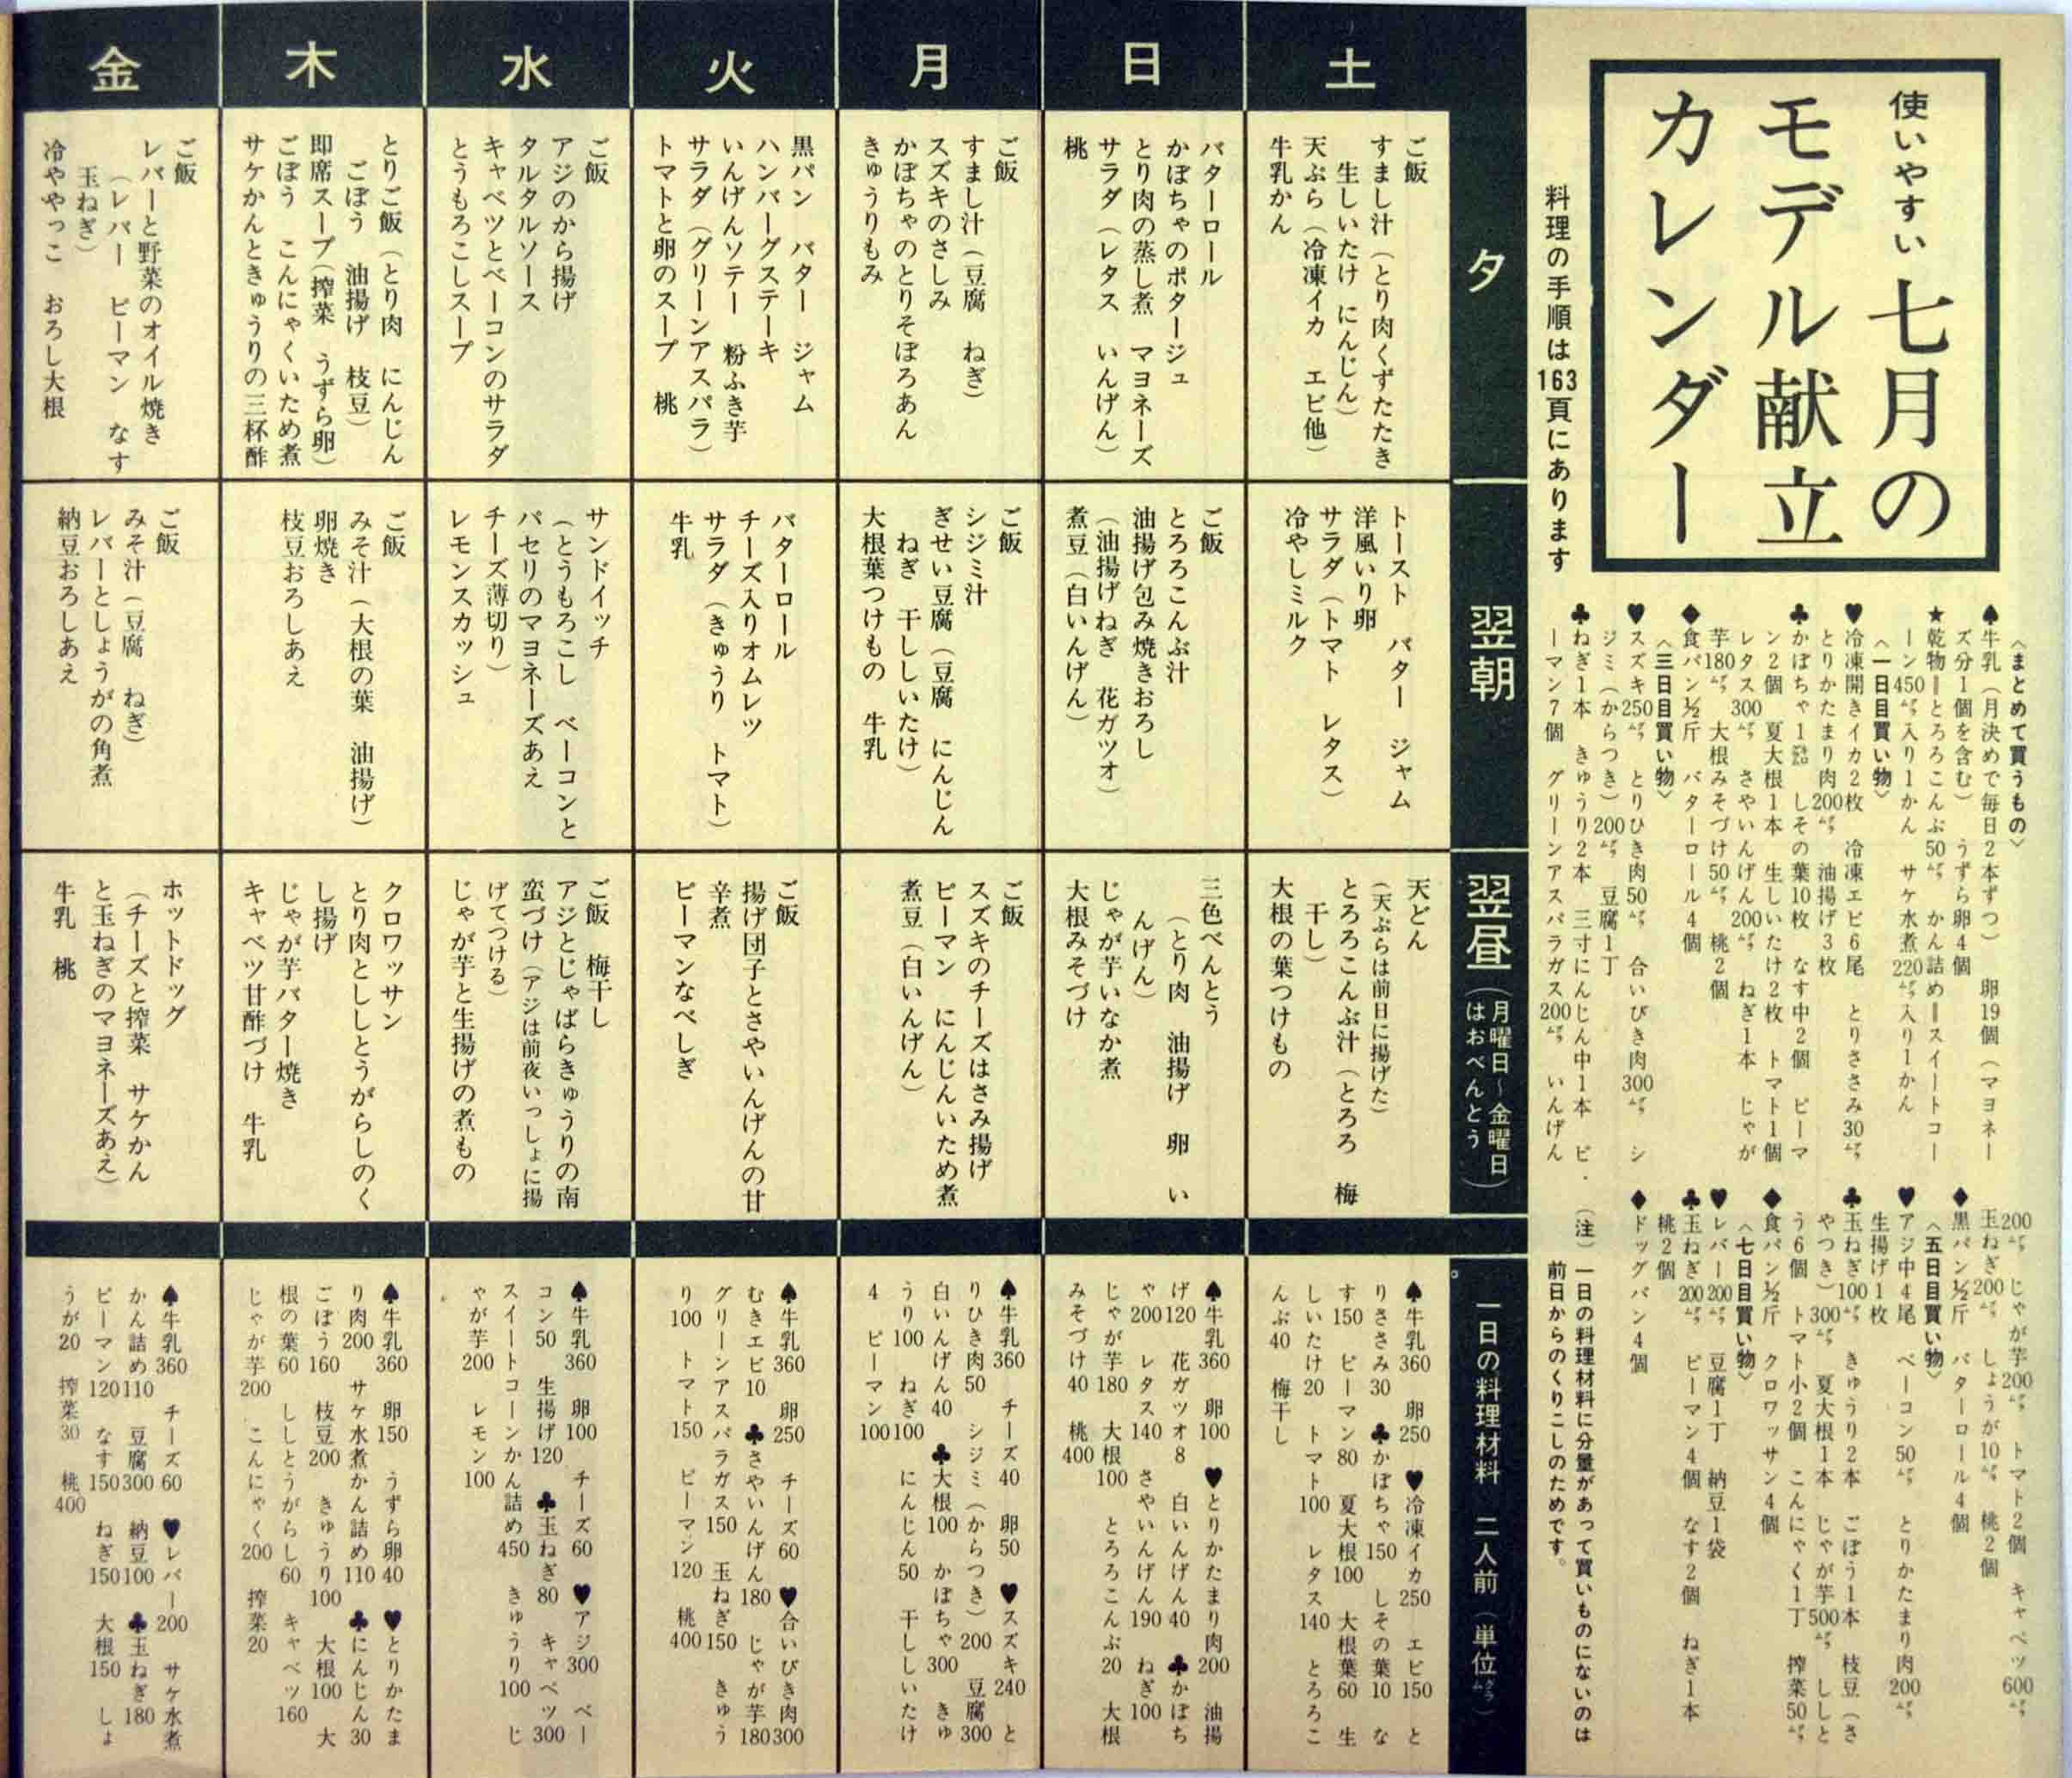 使いやすい七月の
モデル献立
カレンダー
料理の手順は163頁にあります
〈まとめて買うもの〉
♠牛乳(月決めで毎日2本ずつ) 卵19個(マヨネー
ズ分1個を含む) うずら卵4個
★乾物=とろろこんぶ50㌘ かん詰め=スイートコー
ン450㌘入り1かん サケ水煮220㌘入り1かん
〈一日目買い物〉
♥冷凍開きイカ2枚 冷凍エビ6尾 とりささみ30㌘
とりかたまり肉200㌘ 油揚げ3枚
♣かぼちゃ1㌔ しその葉10枚 なす中2個 ピーマ
ン2個 夏大根1本 生しいたけ2枚 トマト1個
レタス300㌘ さやいんげん200㌘ ねぎ1本 じゃが
芋180㌘ 大根みそづけ50㌘ 桃2個
◆食パン½斤 バターロール4個
〈三日目買い物〉
♥スズキ250㌘ とりひき肉50㌘ 合いびき肉300㌘ シ
ジミ(からつき)200㌘ 豆腐1丁
♣ねぎ1本 きゅうり2本 三寸にんじん中1本 ピ
ーマン7個 グリーンアスパラガス200㌘ いんげん
200㌘ じゃが芋200㌘ トマト2個 キャベツ600㌘
玉ねぎ200㌘ しょうが10㌘ 桃2個
◆黒パン½斤 バターロール4個
〈五日目買い物〉
♥アジ中4尾 ベーコン50㌘ とりかたまり肉200㌘
生揚げ1枚
♣玉ねぎ100㌘ きゅうり2本 ごぼう1本 枝豆(さ
やつき)300㌘ 夏大根1本 じゃが芋500㌘ ししと
う6個 トマト小2個 こんにゃく1丁 搾菜50㌘
◆食パン½斤 クロワッサン4個
〈七日目買い物〉
♥レバー200㌘ 豆腐1丁 納豆1袋
♣玉ねぎ200㌘ ピーマン4個 なす2個 ねぎ1本
桃2個
◆ドッグパン4個
(注) 一日の料理材料に分量があって買いものにないのは
前日からのくりこしのためです。
夕
翌朝
翌昼(月曜日〜金曜日
はおべんとう)
一日の料理材料 二人前(単位㌘)
土
ご飯
すまし汁(とり肉くずたたき
生しいたけ にんじん)
天ぷら(冷凍イカ エビ他)
牛乳かん
トースト バター ジャム
洋風いり卵
サラダ(トマト レタス)
冷やしミルク
天どん
(天ぷらは前日に揚げた)
とろろこんぶ汁(とろろ 梅
干し)
大根の葉つけもの
♠牛乳360 卵250 ♥冷凍イカ250 エビ150 と
りささみ30 ♣かぼちゃ150 しその葉10 な
す150 ピーマン80 夏大根100 大根葉60 生
しいたけ20 トマト100 レタス140 とろろこ
んぶ40 梅干し
日
バターロール
かぼちゃのポタージュ
とり肉の蒸し煮 マヨネーズ
サラダ(レタス いんげん)
桃
ご飯
とろろこんぶ汁
油揚げ包み焼きおろし
(油揚げねぎ 花ガツオ)
煮豆(白いんげん)
三色べんとう
(とり肉 油揚げ 卵 い
んげん)
じゃが芋いなか煮
大根みそづけ
♠牛乳360 卵100 ♥とりかたまり肉200 油揚
げ120 花ガツオ8 白いんげん40 ♣かぼち
ゃ200 レタス140 さやいんげん190 ねぎ100
じゃが芋180 大根100 とろろこんぶ20 大根
みそづけ40 桃400
月
ご飯
すまし汁(豆腐 ねぎ)
スズキのさしみ
かぼちゃのとりそぼろあん
きゅうりもみ
ご飯
シジミ汁
ぎせい豆腐(豆腐 にんじん
ねぎ 干ししいたけ)
大根葉つけもの 牛乳
ご飯
スズキのチーズはさみ揚げ
ピーマン にんじんいため煮
煮豆(白いんげん)
♠牛乳360 チーズ40 卵50 ♥スズキ240 と
りひき肉50 シジミ(からつき)200 豆腐300
白いんげん40 ♣大根100 かぼちゃ300 きゅ
うり100 ねぎ100 にんじん50 干ししいたけ
4 ピーマン100
火
黒パン バター ジャム
ハンバーグステーキ
いんげんソテー 粉ふき芋
サラダ(グリーンアスパラ)
トマトと卵のスープ 桃
バターロール
チーズ入りオムレツ
サラダ(きゅうり トマト)
牛乳
ご飯
揚げ団子とさやいんげんの甘
辛煮
ピーマンなべしぎ
♠牛乳360 卵250 チーズ60 ♥合いびき肉300
むきエビ10 ♣さやいんげん180 じゃが芋180
グリーンアスパラガス150 玉ねぎ150 きゅう
り100 トマト150 ピーマン120 桃400
水
ご飯
アジのから揚げ
タルタルソース
キャベツとベーコンのサラダ
とうもろこしスープ
サンドイッチ
(とうもろこし ベーコンと
パセリのマヨネーズあえ
チーズ薄切り)
レモンスカッシュ
ご飯 梅干し
アジとじゃばらきゅうりの南
蛮づけ(アジは前夜いっしょに揚
げてつける)
じゃが芋と生揚げの煮もの
♠牛乳360 卵100 チーズ60 ♥アジ300 ベー
コン50 生揚げ120 ♣玉ねぎ80 キャベツ300
スイートコーンかん詰め450 きゅうり100 じ
ゃが芋200 レモン100
木
とりご飯(とり肉 にんじん
ごぼう 油揚げ 枝豆)
即席スープ(搾菜 うずら卵)
ごぼう こんにゃくいため煮
サケかんときゅうりの三杯酢
ご飯
みそ汁(大根の葉 油揚げ)
卵焼き
枝豆おろしあえ
クロワッサン
とり肉とししとうがらしのく
し揚げ
じゃが芋バター焼き
キャベツ甘酢づけ 牛乳
♠牛乳360 卵150 うずら卵40 ♥とりかたま
り肉200 サケ水煮かん詰め110 ♣にんじん30
ごぼう160 枝豆200 きゅうり100 大根100 大
根の葉60 ししとうがらし60 キャベツ160
じゃが芋200 こんにゃく200 搾菜20
金
ご飯
レバーと野菜のオイル焼き
(レバー ピーマン なす
玉ねぎ)
冷ややっこ おろし大根
ご飯
みそ汁(豆腐 ねぎ)
レバーとしょうがの角煮
納豆おろしあえ
ホットドッグ
(チーズと搾菜 サケかん
と玉ねぎのマヨネーズあえ)
牛乳 桃
♠牛乳360 チーズ60 ♥レバー200 サケ水煮
かん詰め110 豆腐300 納豆100 ♣玉ねぎ180
ピーマン120 なす150 ねぎ150 大根150 しょ
うが20 搾菜30 桃400